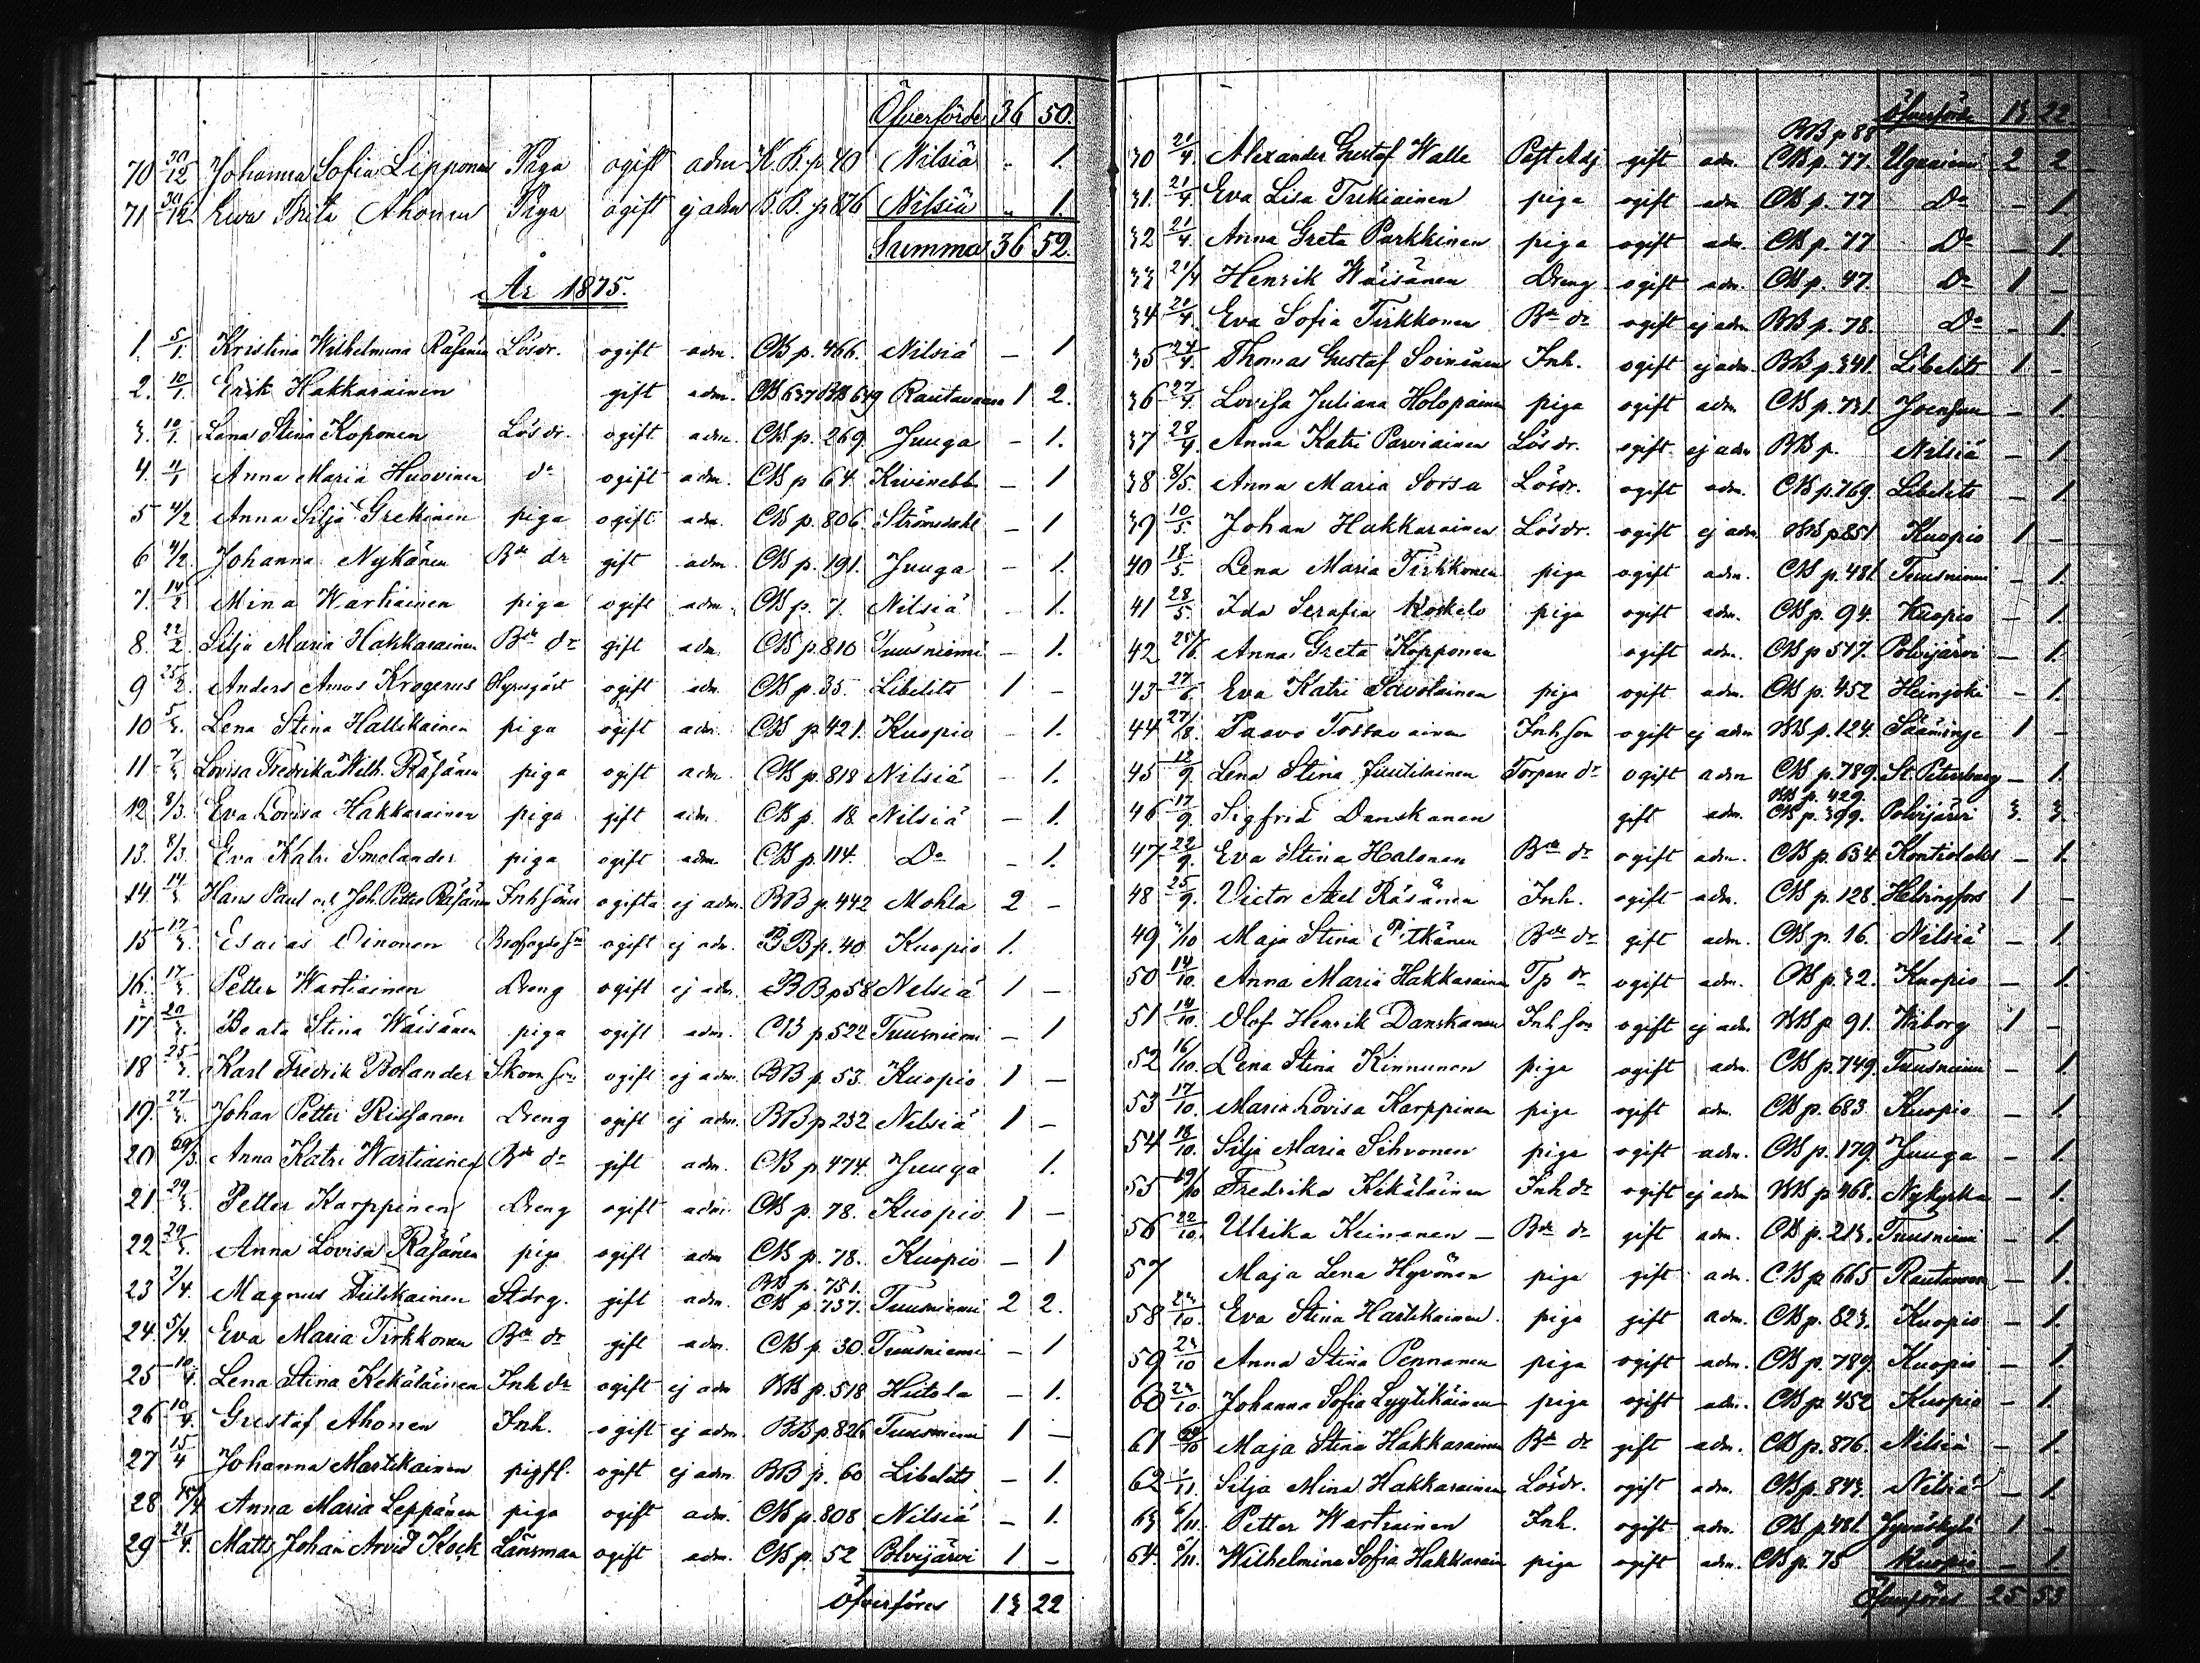 Öfverförde 36 50.
70 30/12 Johanna Sofia Lipponen Piga ogift adm K.B. p 40 Nilsiä " 1.
71 30/12 Ewa Brita Ahonen Piga ogift ej adm B.B. p 876 Nilsiä " 1.
Summa 36 52.
År 1875.
1. 5/1. Kristina Wilhelmina Räsänen Lösdr. ogift adm. CB p. 466. Nilsiä — 1
2. 10/1. Erik Hakkarainen gift adm. CB 637 BB 649 Rautavaara 1 2.
3. 10/1. Lena Stina Koponen Lösdr. ogift adm. CB p. 269. Juuga — 1.
4. Anna Maria Huovinen do ogift adm. CB p 64. Kivinebb — 1
5 4/2 Anna Silja Grekinen piga ogift adm. CB p. 806. Strömsdahl — 1
6 4/2 Johanna Nykänen Bde dr gift adm. CB p. 191. Juuga — 1.
7. 14/2 Mina Wartiainen piga ogift adm. CB p. 7. Nilsiä — 1.
8. 22/2 Silja Maria Hakkarainen Bde dr gift adm CB p. 810 Tuusniemi — 1.
9 25/2. Anders Amos Krogerus Hyresgäst ogift adm CB p. 35. Libelits 1 —
10 5/3. Lena Stina Hallikainen piga ogift adm. CB p 421. Kuopio — 1.
11 7/3 Lovisa Fredrika Wilh. Räsänen piga ogift adm. CB p. 818 Nilsiä — 1.
12 8/3. Eva Lovisa Hakkarainen piga gift adm. CB p. 18 Nilsiä — 1.
13. 8/3. Eva Katri Smolander piga ogift adm. CB p. 114. Do — 1.
14 14/3 Hans Paul och Joh. Petter Räsänen Inh söner ogifta ej adm. BB p. 442 Mohla 2 —
15 17/3. Esaias Oinonen ogift ej adm. BB p. 40 Kuopio 1.
16. 17/3. Petter Wartiainen Dreng ogift ej adm. BB p 58 Nilsiä 1 —
17 20/3. Beata Stina Wäisänen piga ogift adm. CB p 522 Tuusniemi — 1
18 25/3. Karl Fredrik Bolander Skom son ogift ej adm. BB p. 53. Kuopio 1 —
19. 27/3. Johan Petter Rissanen Dreng ogift ej adm. BB p 232 Nilsiä 1 —
20 29/3. Anna Katri Wartiainen Bde dr gift adm. CB p. 474. Juuga 1.
21 29/3. Petter Karppinen Dreng ogift adm. CB p. 78. Kuopio 1 —
22 29/3. Anna Lovisa Räsänen piga ogift adm CB p. 78. Kuopio — 1
BB p. 751.
23 2/4. Magnus Tiilikainen Stdrg. gift adm. CB p. 737. Tuusniemi 2 2.
24. 5/4. Eva Maria Tirkkonen Bde dr gift adm. CB p. 30. Tuusniemi — 1
25 10/4. Lena Stina Kekäläinen Inh dr ogift ej adm BB p. 518 Hiitola — 1.
26 10/4. Gustaf Ahonen Inh. ogift ej adm. BB p. 826 Tuusniemi 1 —
27 15/4 Johanna Martikainen pigfl. ogift ej adm. BB p. 60 Libelits — 1.
28 Anna Maria Leppänen piga ogift adm. CB p. 808 Nilsiä — 1.
29 21/4. Matts Johan Arvid Kock Länsman ogift adm. CB p. 52 Polvijärvi 1 —
Öfverföres 13 22
Öfverförde 13 22.
BB p 88
30 21/4. Alexander Gustaf Walle Past. Adj. gift adm. CB p. 77. Uguniemi 2 2
31. 21/4. Eva Lisa Turkiainen piga ogift adm CB p. 77 Do — 1.
32 21/4. Anna Greta Parkkinen piga ogift adm. CB p. 77 Do — 1.
33 21/4 Henrik Wäisänen Dreng ogift adm. CB p. 47. Do 1 —
34 21/4. Eva Sofia Tirkkonen Bde dr ogift ej adm BB p. 78. Do — 1.
35 27/4. Thomas Gustaf Soininen Inh. ogift ej adm. BB p. 341. Libelits 1 —
36 27/4. Lovisa Juliana Holopainen piga ogift adm CB p. 731. Joensuu — 1.
37 28/4. Anna Katri Parviainen Lösdr. ogift ej adm BB p. Nilsiä — 1.
38 8/5. Anna Maria Sorsa Lösdr. ogift adm. CB p. 769. Libelits — 1.
39 10/5. Johan Hakkarainen Lösdr. ogift ej adm. BB p 851 Kuopio 1 —
40 18/5. Lena Maria Tirkkonen piga ogift adm. CB p. 481. Tuusniemi — 1.
41 28/5. Ida Serafia Koskelo piga ogift adm. CB p. 94. Kuopio — 1.
42 Anna Greta Kopponen ogift adm. CB p 517. Polvijärvi — 1.
43 27/6. Eva Katri Savolainen piga ogift adm. CB p. 452 Heinjoki — 1.
44 27/8. Paavo Tossavainen Inh son ogift ej adm BB p. 124. Sääminge 1 —
45 12/9. Lena Stina Juutilainen Torpare dr ogift adm CB p. 789. St Petersburg — 1.
BB p. 429.
46 17/9. Sigfrid Danskanen gift adm. CB p. 399. Polvijärvi 3. 3.
47 22/9. Eva Stina Halonen Bde dr ogift adm. CB p. 634. Kontiolaks — 1.
48 25/9. Victor Axel Räsänen Inh. ogift adm. CB p. 128. Helsingfors 1 —
49 Maja Stina Pitkänen Bde dr gift adm. CB p. 16. Nilsiä — 1.
50 14/10. Anna Maria Hakkarainen Tp dr ogift adm. CB p. 32. Kuopio — 1.
51 14/10. Olof Henrik Danskanen Inh son ogift ej adm. BB p 91. Wiborg 1 —
52 16/10. Lena Stina Kinnunen piga ogift adm. CB p. 749. Tuusniemi — 1.
53 17/10. Maria Lovisa Karppinen piga ogift adm. CB p. 683. Kuopio — 1.
54 18/10. Silja Maria Sihvonen piga ogift adm. CB p. 179. Juuga — 1.
55 19/10 Fredrika Kekäläinen Inh dr ogift ej adm BB p 468. Nykyrka — 1.
56 22/10. Ulrika Keinanen — Bde dr gift adm. CB p. 213. Tuusniemi — 1.
57 Maja Lena Hyvönen piga gift adm. CB p 665 Rautavaara — 1.
58 23/10 Eva Stina Hartikainen piga gift adm. CB p. 823. Kuopio — 1.
59 23/10 Anna Stina Pennanen piga ogift adm. CB p. 789. Kuopio — 1.
60 23/10. Johanna Sofia Lyytikäinen piga ogift adm. CB p 452 Kuopio — 1.
61 Maja Stina Hakkarainen Bde dr gift adm. CB p. 876. Nilsiä — 1.
62 1/11. Silja Mina Hakkarainen Lösdr. ogift adm. CB p. 843. Nilsiä — 1.
63 6/11. Petter Wartiainen Inh. ogift adm. CB p 481. Jyväskylä 1 —
64. 6/11. Wilhelmina Sofia Hakkarain piga ogift adm. CB p. 75 Kuopio — 1.
Öfverföres 25 53